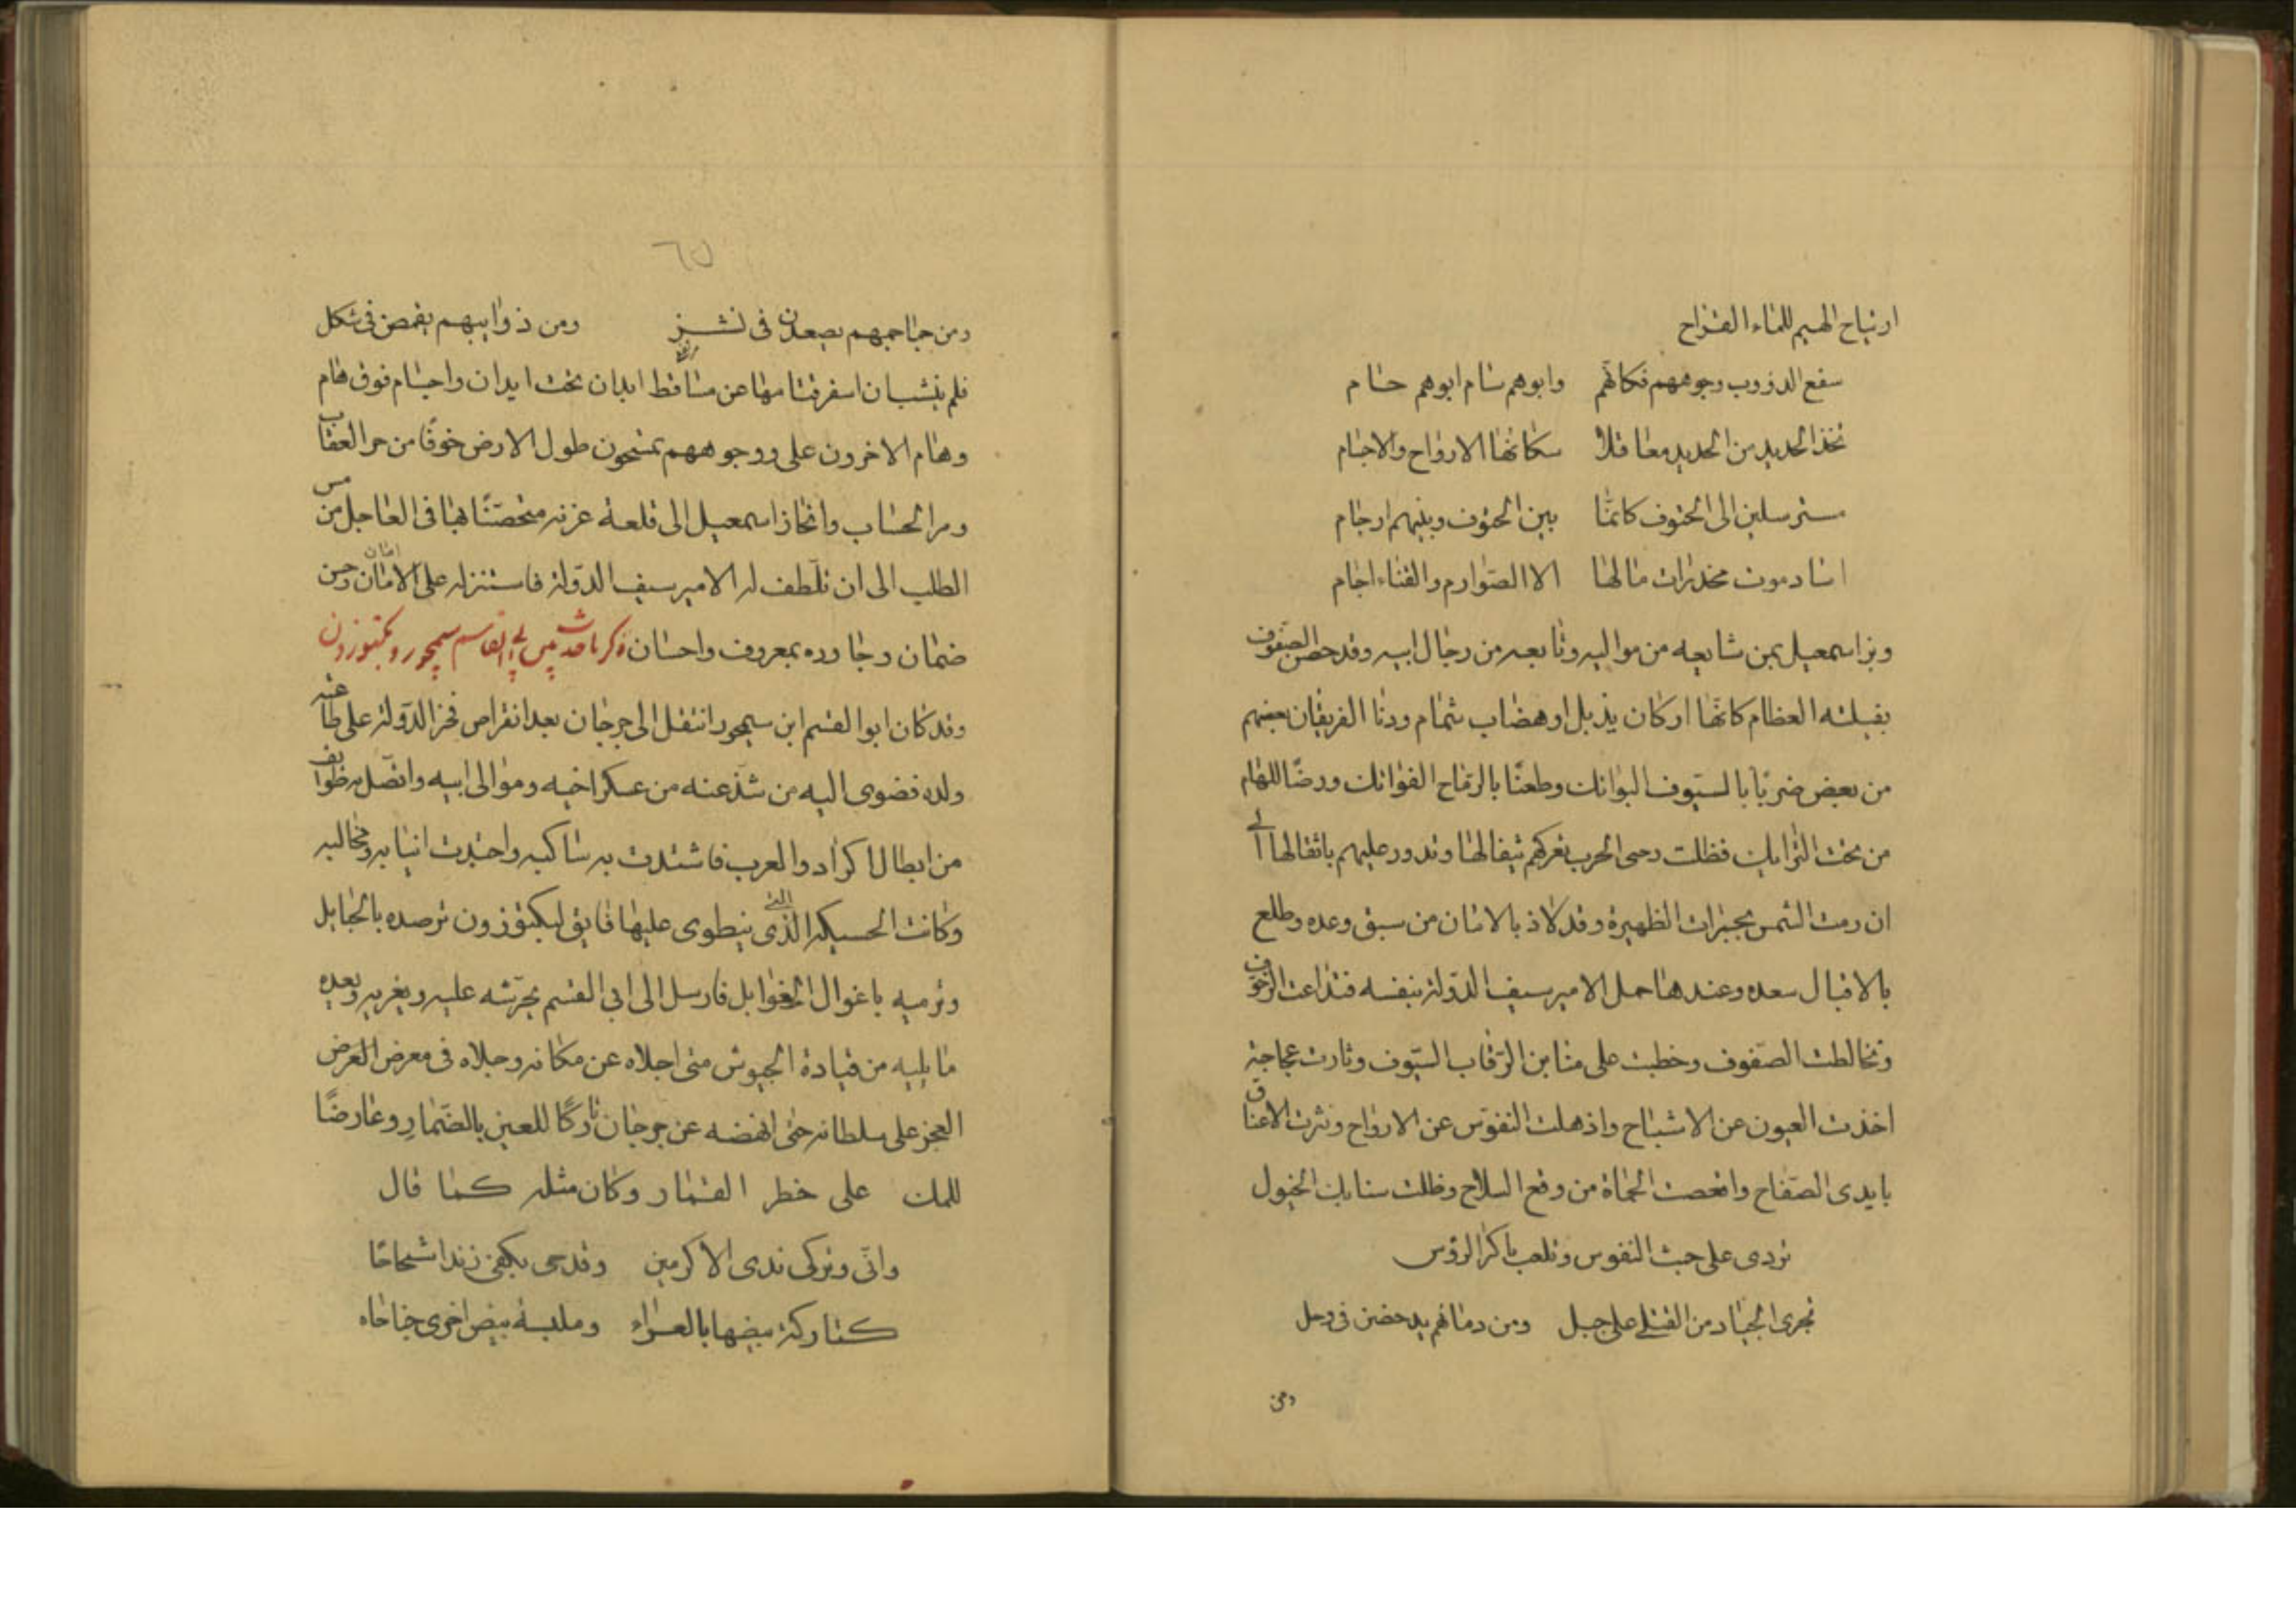 ارتياح الهيم للماء القراح
سفع الدؤوب وجوههم فكانهم وابوهم سام ابوهم حام
تخذ الحديد من الحديد معاقلا سكانها الارواح والاجسام
مسترسلين الى الحتوف كانما بين الحتوف وبينهم ارحام
اساد موت مخدرات مالها الا الصوارم والقناء اجام
وبرز اسمعيل بمن شايعه من مواليه وتابعه من رجال ابيه وقد حصن الصفوف
بفيلته العظام كانها اركان يذبل او هضاب شمام ودنا الفريقان بعضهم
من بعض ضربا بالسيوف البواتك وطعنا بالرماح الفواتك ورضا للهام
من تحت الترايك فظلت رحى الحرب تعركهم بثفالها وتدور عليهم باثقالها الى
ان رمت الشمس بجمرات الظهيرة وقد لاذ بالامان من سبق وعده وطلع
بالاقبال سعده وعندها حمل الامير سيف الدولة بنفسه فتداعت الزحوف
وتخالطت الصفوف وخطبت على منابر الرقاب السيوف وثارت عجاجة
اخذت العيون عن الاشباح واذهلت النفوس عن الارواح ونثرت الاعناق
بايدى الصفاح وافحصت الحماة من وقع السلاح وظلت سنابك الخيول
تردى على جثث النفوس وتلعب باكر الرؤس
تجرى الجياد من القتلى على جبل ومن دمائهم يدحضن فى وحل
ومن
٦٥
ومن جماجمهم يصعدن فى نشز ومن ذوايبهم يقمصن فى شكل
فلم ينشب ان اسفر قتامها عن مساقط ابدان تحت ايدان واجسام فوق هام
وهام الاخرون على وجوههم يمسحون طول الارض خوفا من حر العقاب
ومر الحساب وانحاز اسمعيل الى قلعة غزنه متحصنا بها فى العاجل من مس
الطلب الى ان تلطف له الامير سيف الدولة فاستنزله على الامان وحسن
ضمان وجاوره بمعروف واحسان ذكر ما حدث بين ابى القاسم سيمجور وبكتوزون
وقد كان ابو القسم ابن سيمجور انتقل الى جرجان بعد انقراض فخر الدولة على طاعة
ولده فضوى اليه من شذ عنه من عسكر اخيه وموالى ابيه واتصل به طوايف
من ابطال اكراد والعرب فاشتدت به شاكيه واحتدت انيابه ومخاليبه
وكانت الحسيكه الذى التى ينطوى عليها فايق لبكتوزون ترصده بالحبايل
وترميه باغوال الغوايل فارسل الى ابى القسم يحرشه عليه ويغريه به ويعده
ما يليه من قيادة الجيوش متى اجلاه عن مكانه وجلاه فى معرض العرض
العجز على سلطانه حتى انهضه عن جرجان تاركا للعين بالضمار وعارضا
للملك على خطر القمار وكان مثله كما قال
وانى وتركى ندى الاكرمين وقدحى بكفى زندا شحاحا
كتاركة بيضها بالعراء وملبسة بيض اخرى جناحاه